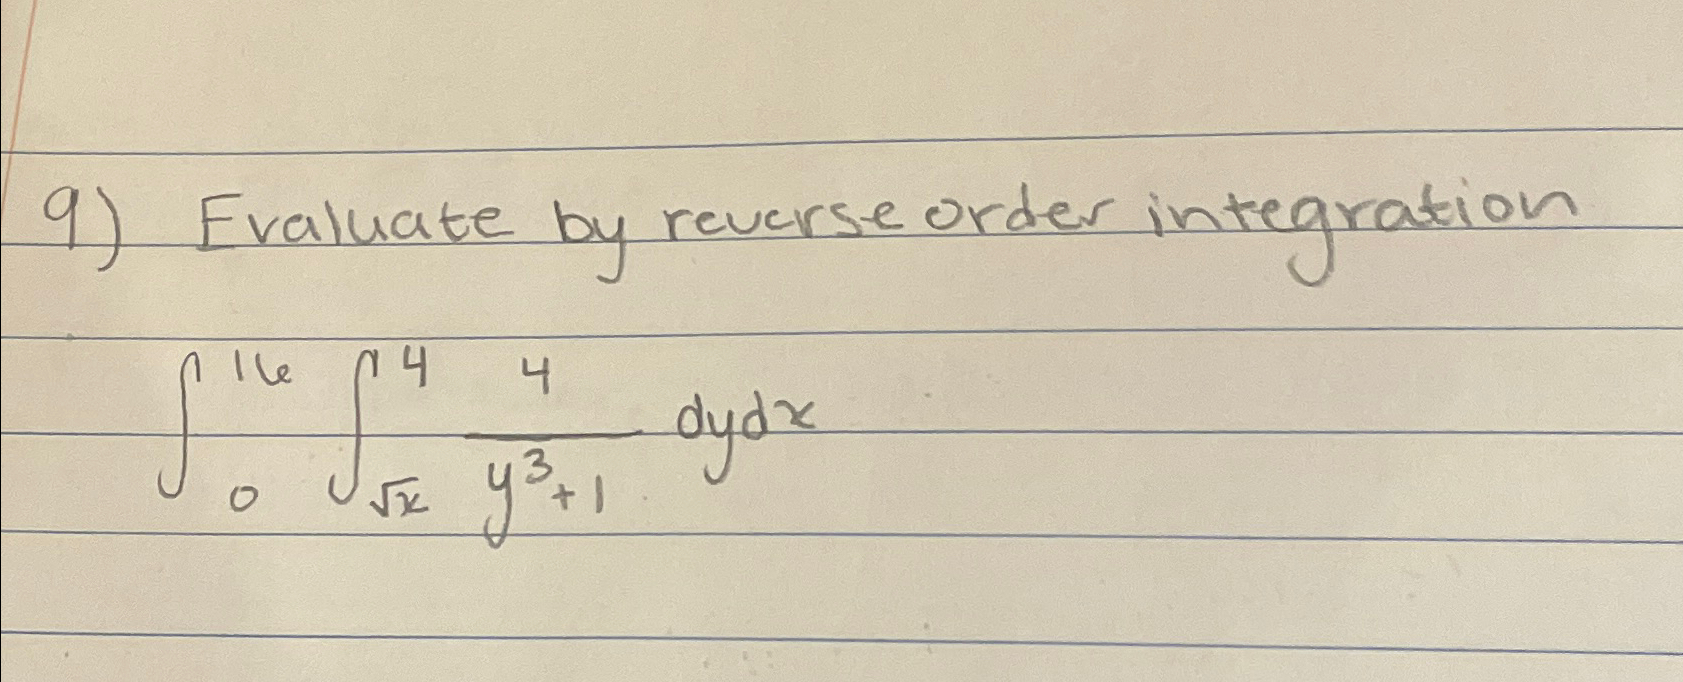 9) Evaluate by reverse order integration
∫₀¹⁶ ∫_√x⁴ 4/(y³+1) dydx